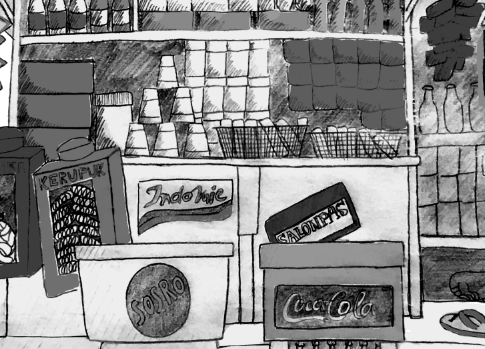 KERUPUK
Indomie
SALONPAS
SOSRO
Coca-Cola